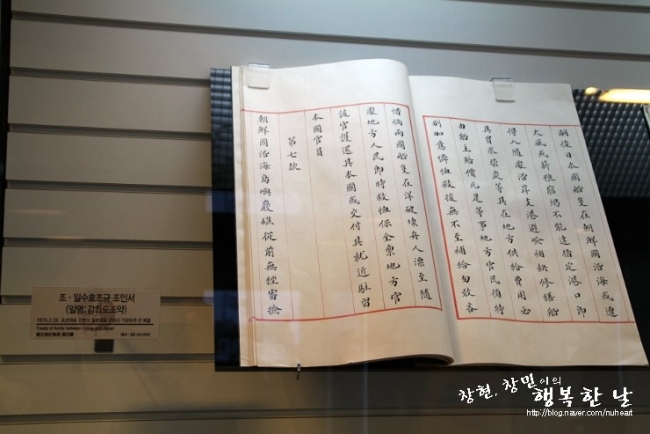 嗣後日本國船隻在朝鮮國沿海或遭
大風或薪粮窮竭不能達指定港口即
得入隨處沿岸支港避險補缺修繕船
具買求柴炭等其在地方供給費用必
由船主賠償凡是等事地方官民須特
別加意憐恤救援無不至補給勿敢吝
惜倘兩國船隻在洋破壞舟人漂至隨
處地方人民即時救恤保全稟地方官
該官護還其本國或交付其就近駐留
本國官員
第七款
朝鮮國沿海島嶼巖礁從前無經審檢
조·일수호조규 조인서
(일명:강화도조약)
1876.2.26.
Treaty of Amity between Korea and Japan
창현, 창민이의 행복한 날
http://blog.naver.com/nuheart